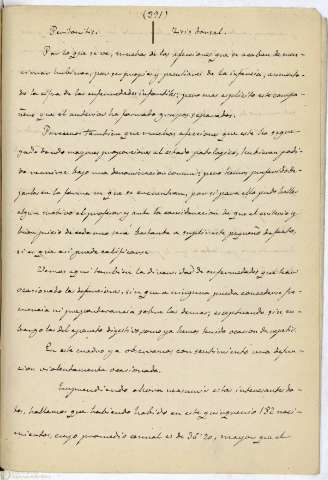 (391)
Peritonitis. Tisis dorsal.
Por lo que se ve, muchas de las afecciones que se acaban de mencionar hubieran, por ser propias y peculiares de la infancia, aumentado la cifra de las enfermedades infantiles; pero mas explícito este compañero que el anterior ha formado grupos separados.
Pensamos tambien que muchas afecciones que este ha segregado dando mayores proporciones al estado patologico, hubieran podido reunirse bajo una denominacion comun; pero hemos preferido dejarlas en la forma en que se encuentran, por si para ello pudo haber algun motivo el profesor, y ante la consideracion de que el criterio y buen juicio de cada uno sera bastante a suplir este pequeño defecto, si es que así puede calificarse.
Vemos aqui tambien la diversidad de enfermedades que han ocasionado las defunciones, sin que a ninguna pueda concederse preeminencia ni preponderancia sobre las demas, exceptuando sin embargo las del aparato digestivo como ya hemos tenido ocasion de repetir.
En este cuadro ya observamos con sentimiento una defuncion violentamente ocasionada.
Emprendiendo ahora resumir estos interesantes datos, hallamos que habiendo habido en este quinquenio 182 nacimientos, cuyo promedio anual es de 36'20, mayor que el